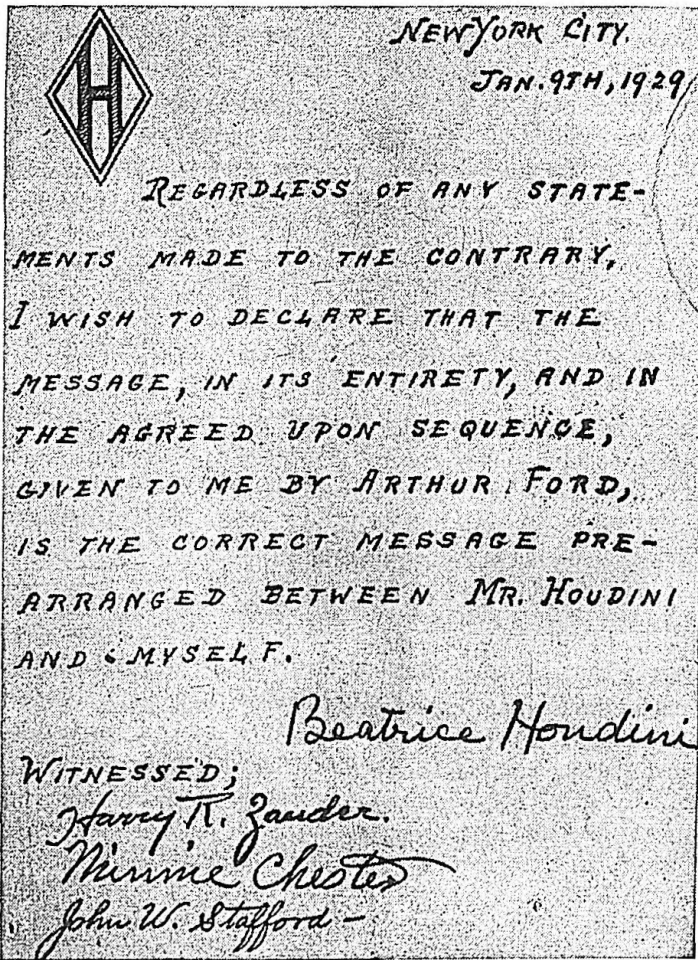 H
NEW YORK CITY.
JAN. 9TH, 1929
REGARDLESS OF ANY STATE-
MENTS MADE TO THE CONTRARY,
I WISH TO DECLARE THAT THE
MESSAGE, IN ITS ENTIRETY, AND IN
THE AGREED UPON SEQUENCE,
GIVEN TO ME BY ARTHUR FORD,
IS THE CORRECT MESSAGE PRE-
ARRANGED BETWEEN MR. HOUDINI
AND MYSELF.
Beatrice Houdini
WITNESSED;
Harry R. Zander.
Minnie Chester
John W. Stafford -